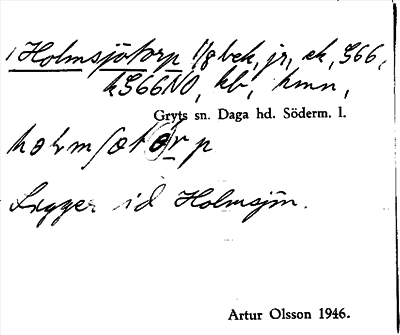 1 Holmsjötorp 1/8 bek, jr, ek, 566,
k566NO, kb, hmn,
Gryts sn. Daga hd. Söderm. l.
Ligger id Holmsjön.
Artur Olsson 1946.